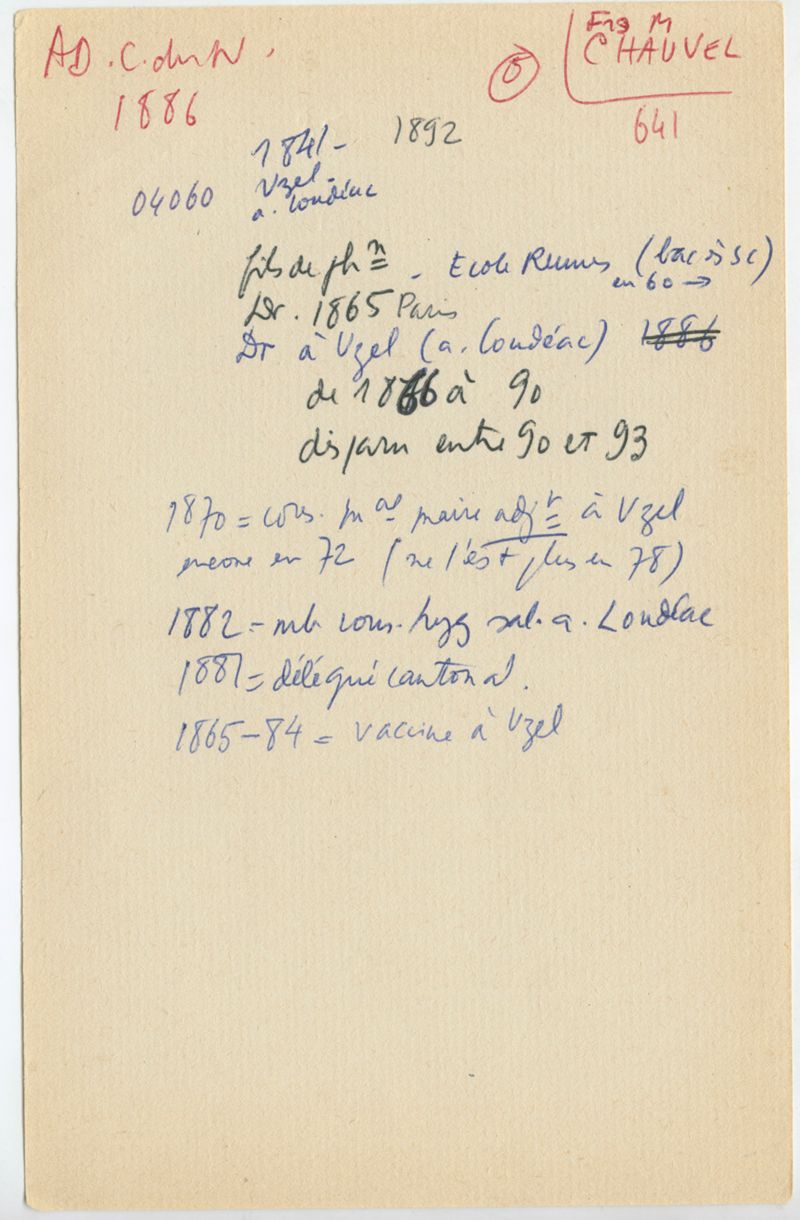 AD. C. du N.
1886
5
Frs M
CHAUVEL
641
1841- 1892
04060 Uzel.
a. Loudéac
fils de phn - Ecole Rennes (bac ès sc)
en 60 →
Dr. 1865 Paris
Dr à Uzel (a. Loudéac) 1886
de 1866 à 90
disparu entre 90 et 93
1870 = cons. mal maire adjt à Uzel
encore en 72 (ne l'est plus en 78)
1882 = mb cons. hyg sal. a. Loudéac
1881 = délégué cantonal.
1865-84 = vaccine à Uzel